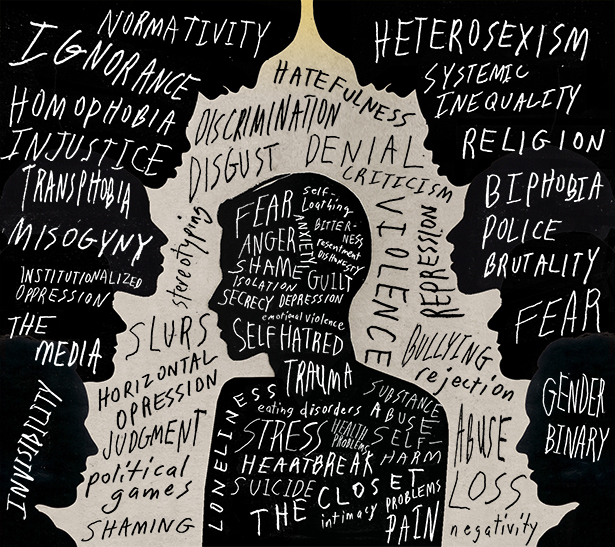 NORMATIVITY
IGNORANCE
HOMOPHOBIA
INJUSTICE
TRANSPHOBIA
MISOGYNY
INSTITUTIONALIZED
OPPRESSION
THE
MEDIA
INVISIBILITY
HATEFULNESS
DISCRIMINATION
DISGUST
DENIAL
CRITICISM
stereotyping
VIOLENCE
REPRESSION
SLURS
HORIZONTAL
OPRESSION
JUDGMENT
political
games
SHAMING
BULLYING
rejection
ABUSE
LOSS
negativity
HETEROSEXISM
SYSTEMIC
INEQUALITY
RELIGION
BIPHOBIA
POLICE
BRUTALITY
FEAR
GENDER
BINARY
FEAR
Self-
Loathing
ANXIETY
BITTER-
NESS
ANGER
resentment
DISHONESTY
SHAME
GUILT
ISOLATION
SECRECY DEPRESSION
emotional violence
SELF HATRED
TRAUMA
LONELINESS
eating disorders
SUBSTANCE
ABUSE
STRESS
HEALTH
PROBLEMS
SELF-
HARM
HEARTBREAK
SUICIDE
THE CLOSET
intimacy
PROBLEMS
PAIN